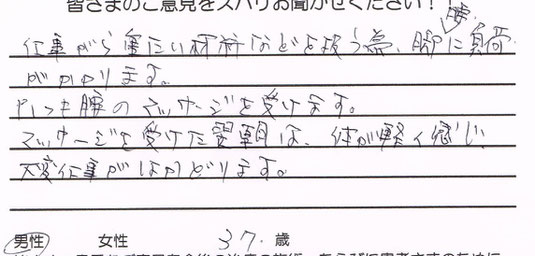 皆さまのご意見をズバリお聞かせください!!
仕事がら重たい材料などを扱う為、脚に腰負荷
がかかります。
いつも腰のマッサージを受けます。
マッサージを受けた翌朝は、体が軽く感じ、
大変仕事がはかどります。
男性 女性 37.歳